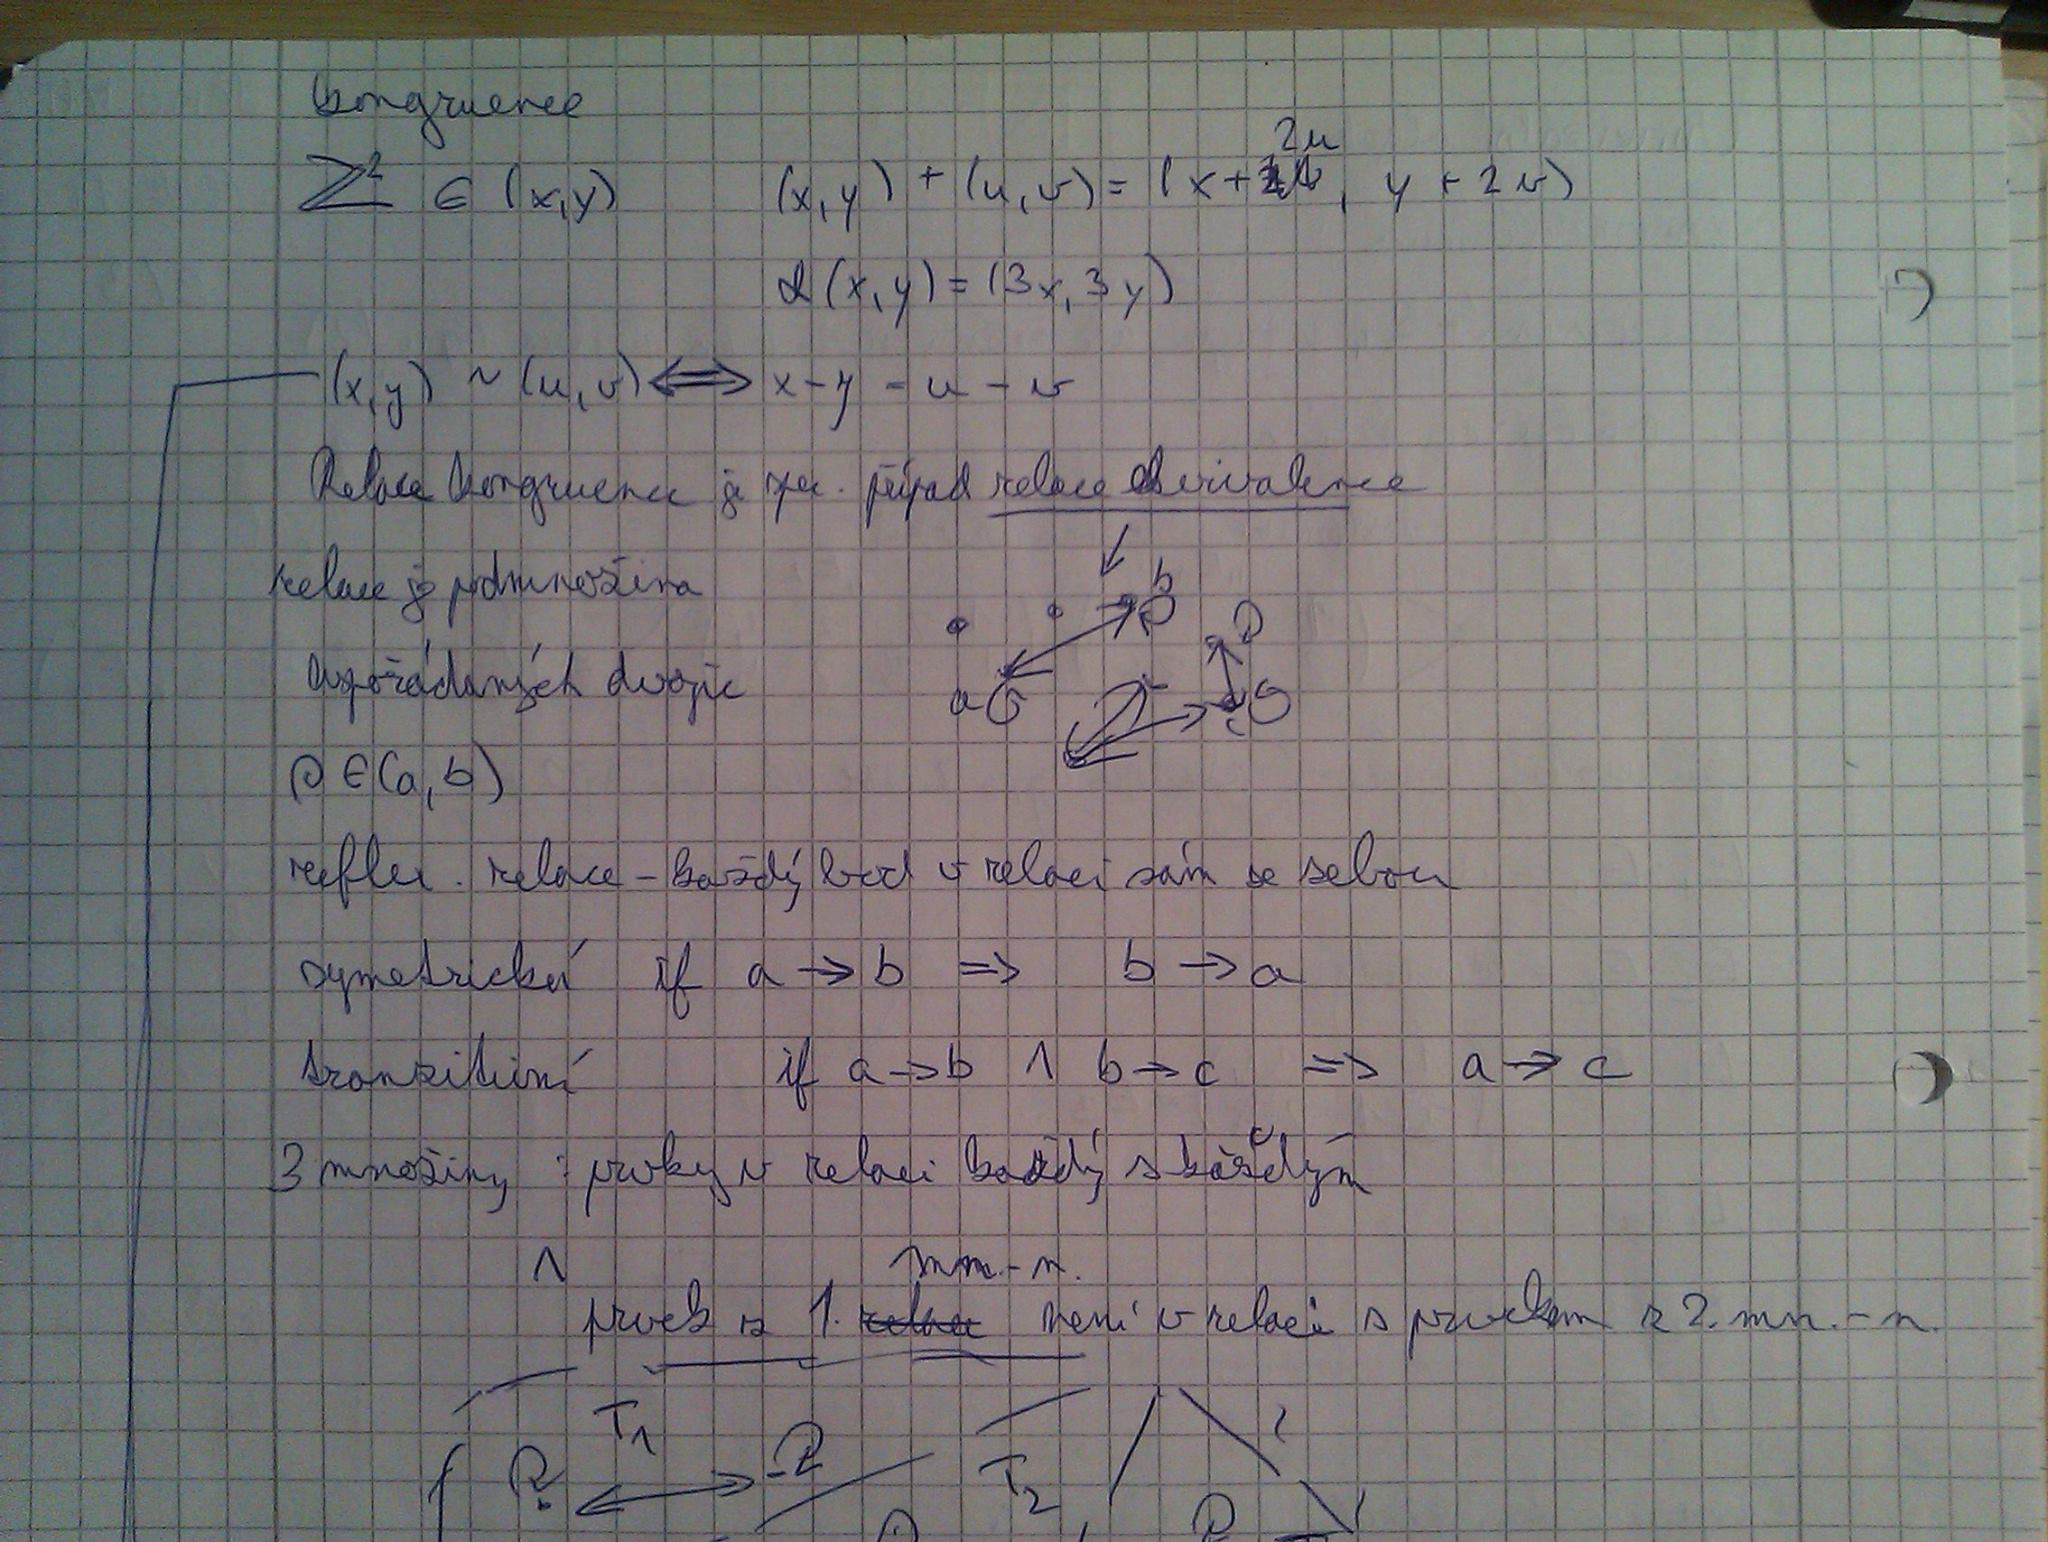 kongruence
ℤ² ∈ (x,y)   (x,y) + (u,v) = (x+2u, y+2v)
α(x,y) = (3x,3y)
(x,y) ~ (u,v) ⟺ x-y = u-v
Relace kongruence je spec. případ relace ekvivalence
relace je podmnožina
uspořádaných dvojic
ρ ∈ (a,b)
reflex. relace - každý bod v relaci sám se sebou
symetrická if a → b => b → a
tranzitivní if a → b ∧ b → c => a → c
3 množiny : prvky v relaci každý s každým
∧ prvek z 1. mn.-n. není v relaci s prvkem z 2. mn.-n.
b
a
c
T1
T2